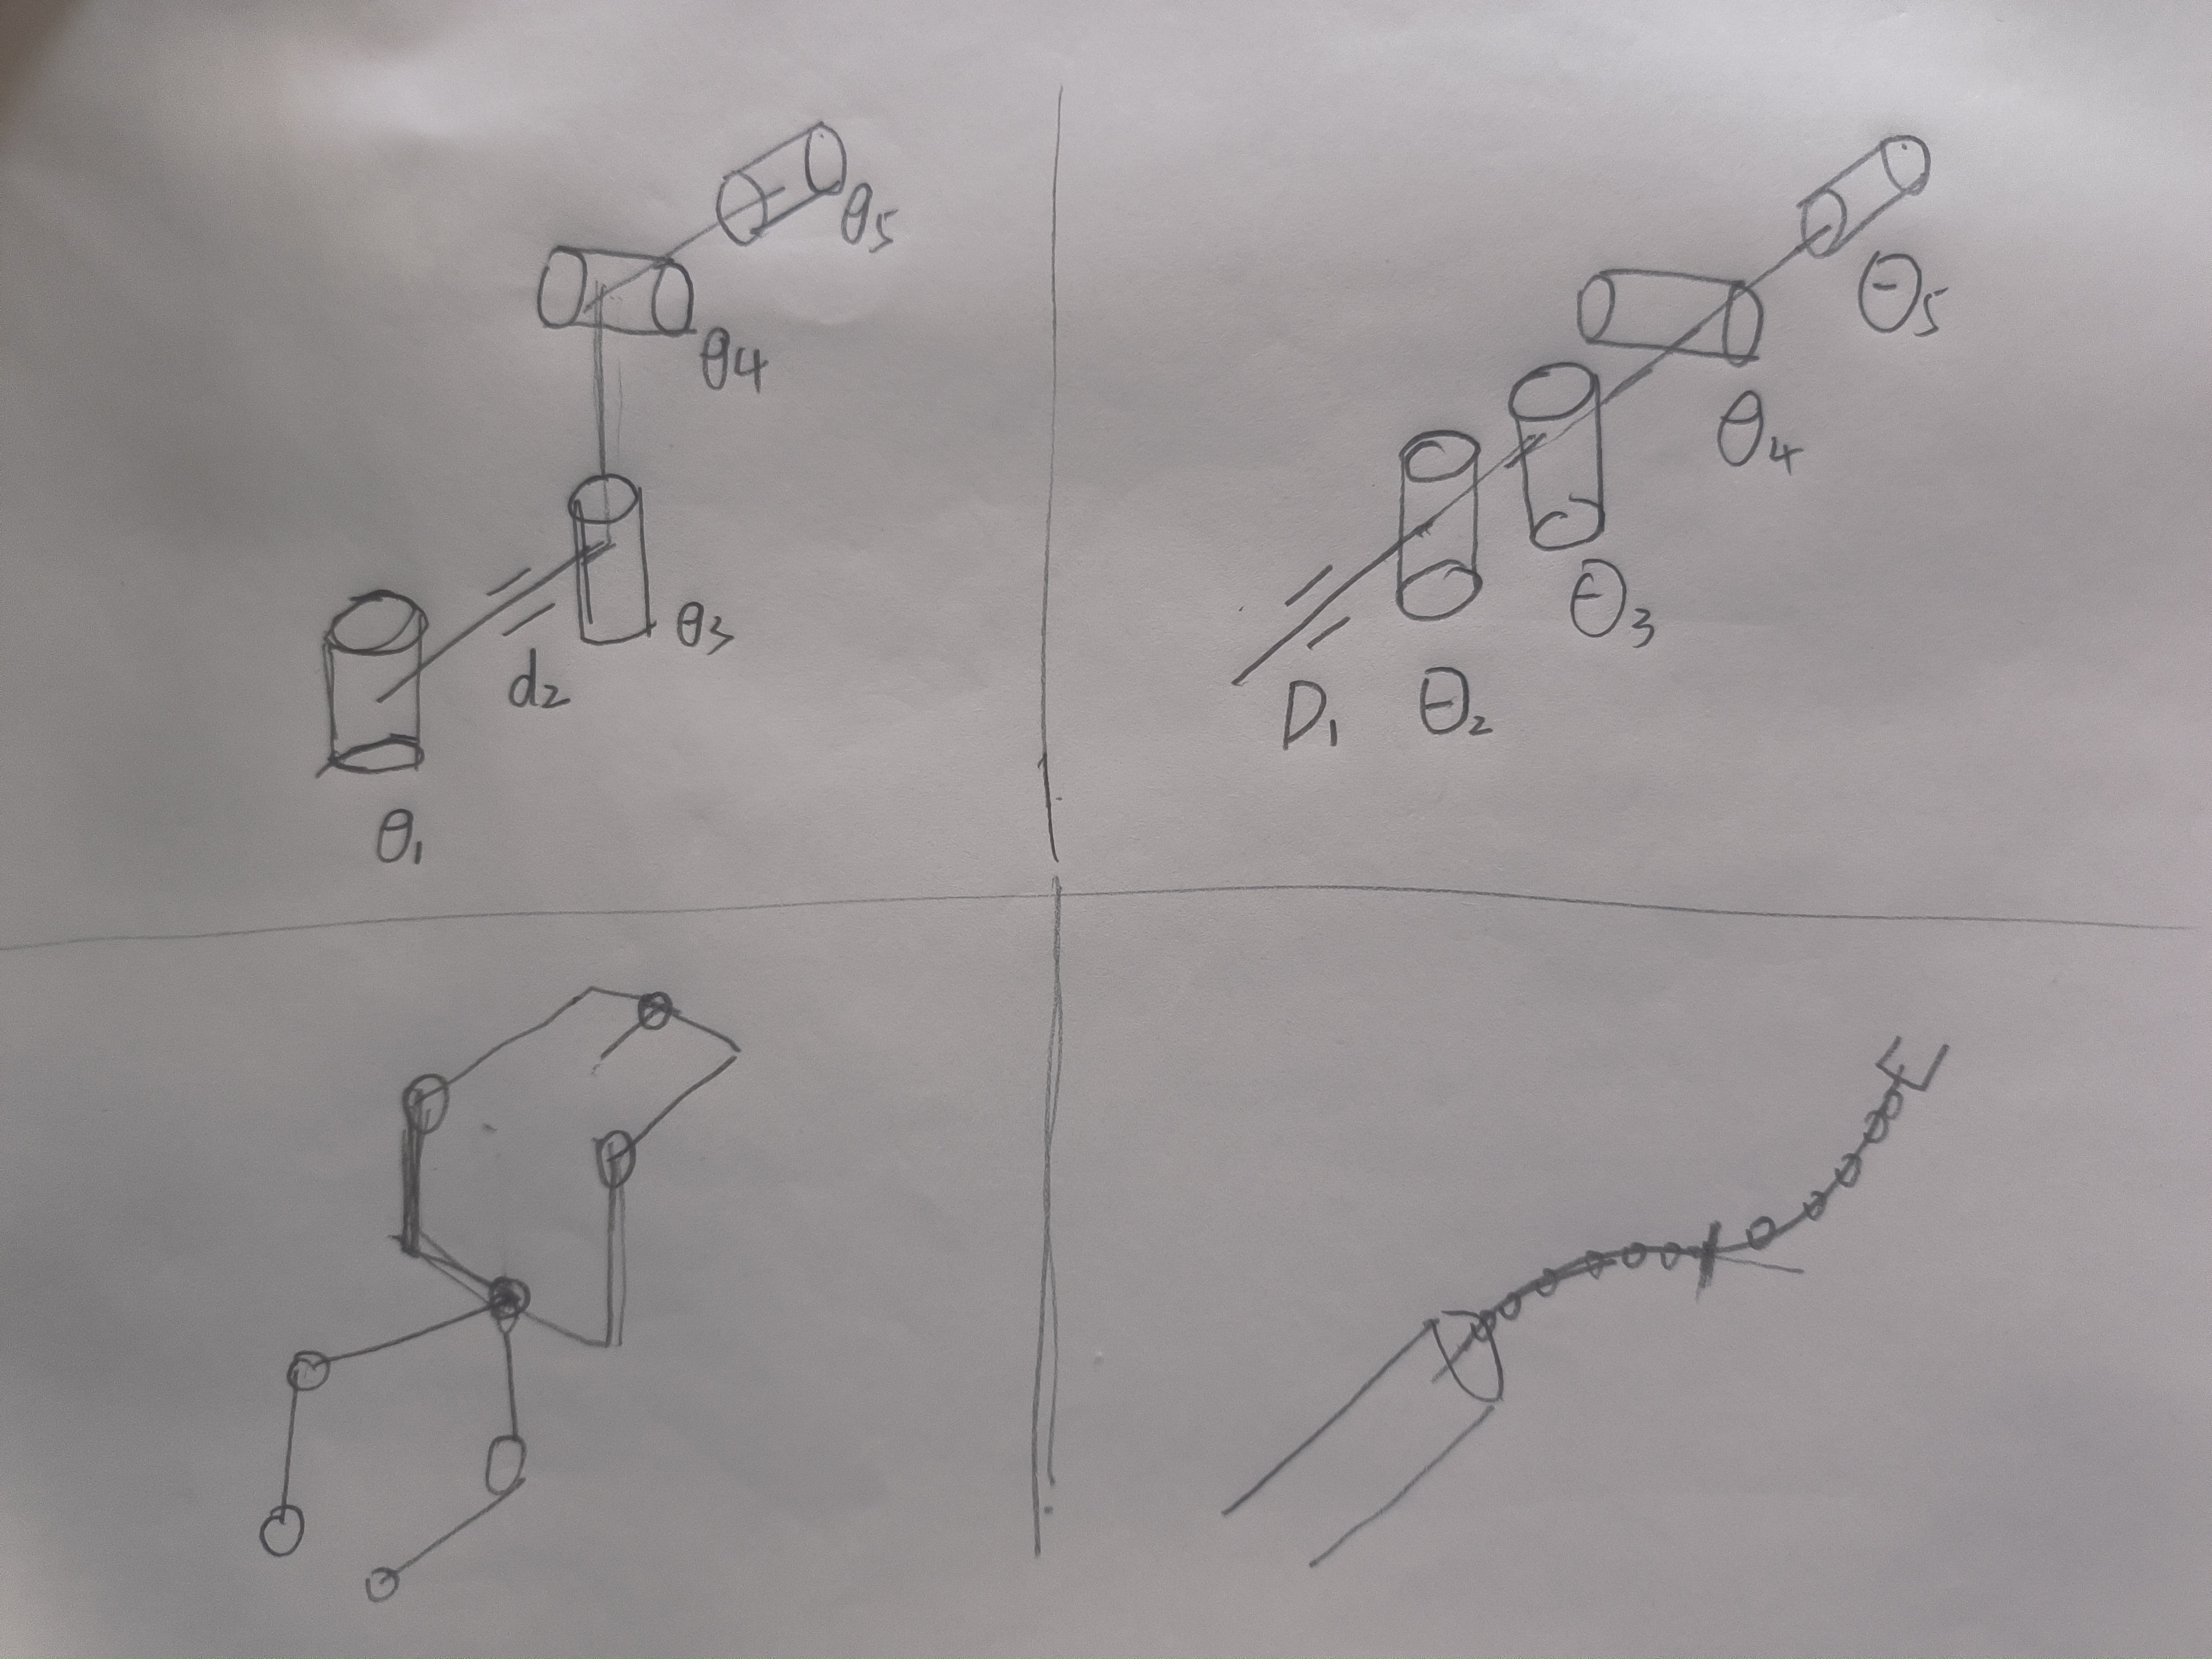 θ5
θ4
θ3
d2
θ1
θ5
θ4
θ3
D1 θ2